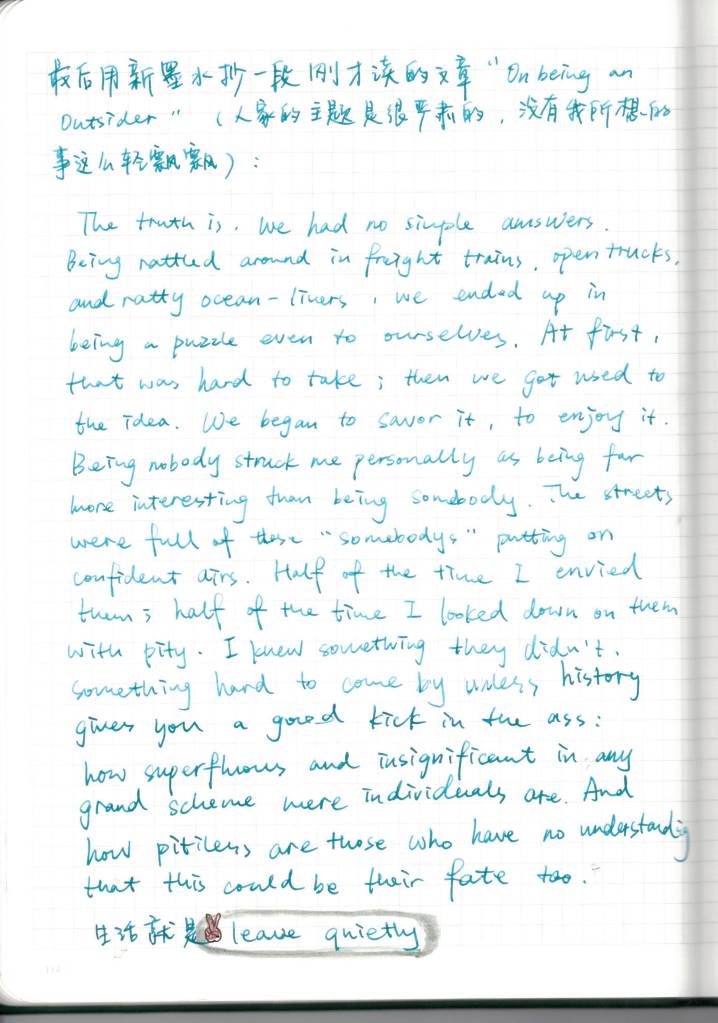 最后用新墨水抄一段刚才读的文章 "On being an
Outsider" (人家的主题是很严肃的, 没有我所想的
事这么轻飘飘):
The truth is, we had no simple answers.
Being rattled around in freight trains, open trucks,
and ratty ocean-liners, we ended up in
being a puzzle even to ourselves. At first,
that was hard to take; then we got used to
the idea. We began to savor it, to enjoy it.
Being nobody struck me personally as being far
more interesting than being somebody. The streets
were full of these "somebodys" putting on
confident airs. Half of the time I envied
them; half of the time I looked down on them
with pity. I knew something they didn't,
something hard to come by unless history
gives you a good kick in the ass:
how superfluous and insignificant in any
grand scheme mere individuals are. And
how pitiless are those who have no understanding
that this could be their fate too.
生活就是 leave quietly